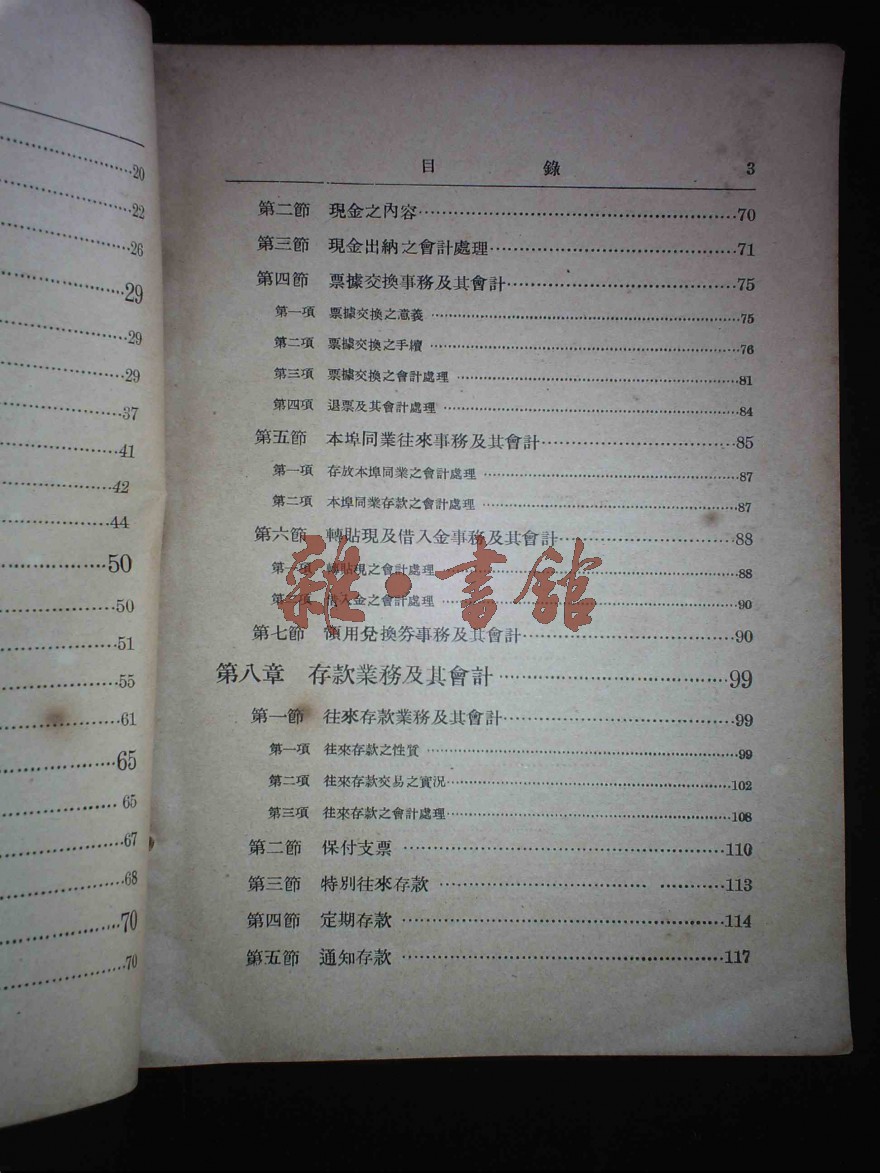 20
22
26
29
29
29
37
41
42
44
50
50
51
55
61
65
65
67
68
70
70
目 錄 3
第二節 現金之內容 70
第三節 現金出納之會計處理 71
第四節 票據交換事務及其會計 75
第一項 票據交換之意義 75
第二項 票據交換之手續 76
第三項 票據交換之會計處理 81
第四項 退票及其會計處理 84
第五節 本埠同業往來事務及其會計 85
第一項 存放本埠同業之會計處理 87
第二項 本埠同業存款之會計處理 87
第六節 轉貼現及借入金事務及其會計 88
第一項 轉貼現之會計處理 88
第二項 借入金之會計處理 90
第七節 領用兌換券事務及其會計 90
第八章 存款業務及其會計 99
第一節 往來存款業務及其會計 99
第一項 往來存款之性質 99
第二項 往來存款交易之實況 102
第三項 往來存款之會計處理 108
第二節 保付支票 110
第三節 特別往來存款 113
第四節 定期存款 114
第五節 通知存款 117
雜·書館